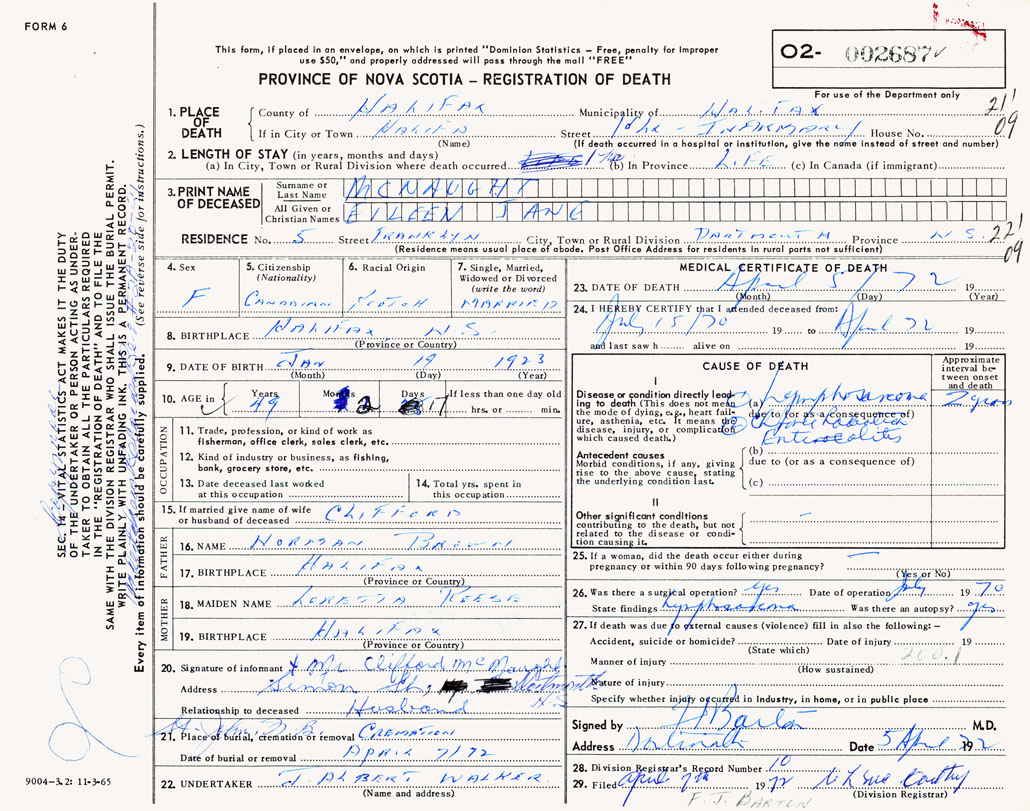 FORM 6
This form, if placed in an envelope, on which is printed "Dominion Statistics – Free, penalty for improper
use $50," and properly addressed will pass through the mail "FREE"
PROVINCE OF NOVA SCOTIA – REGISTRATION OF DEATH
O2- 002687
For use of the Department only
1. PLACE OF DEATH
County of HALIFAX Municipality of HALIFAX 21/09
If in City or Town Street INFIRMARY House No.
(Name) (If death occurred in a hospital or institution, give the name instead of street and number)
2. LENGTH OF STAY (in years, months and days)
(a) In City, Town or Rural Division where death occurred (b) In Province LIFE (c) In Canada (if immigrant)
3. PRINT NAME OF DECEASED
Surname or Last Name MCNAUGHT
All Given or Christian Names EILEEN JANE
RESIDENCE No. 5 Street FRANKLYN City, Town or Rural Division DARTMOUTH Province N.S. 221/09
(Residence means usual place of abode. Post Office Address for residents in rural parts not sufficient)
4. Sex
F
5. Citizenship
(Nationality)
CANADIAN
6. Racial Origin
SCOTCH
7. Single, Married,
Widowed or Divorced
(write the word)
MARRIED
8. BIRTHPLACE HALIFAX N.S.
(Province or Country)
9. DATE OF BIRTH JAN 19 1923
(Month) (Day) (Year)
10. AGE in Years Months Days If less than one day old
49 2 17 hrs. or min.
OCCUPATION
11. Trade, profession, or kind of work as
fisherman, office clerk, sales clerk, etc.
12. Kind of industry or business, as fishing,
bank, grocery store, etc.
13. Date deceased last worked
at this occupation
14. Total yrs. spent in
this occupation
15. If married give name of wife
or husband of deceased CLIFFORD
FATHER
16. NAME NORMAN BROWN
17. BIRTHPLACE HALIFAX
(Province or Country)
MOTHER
18. MAIDEN NAME LORETTA REESE
19. BIRTHPLACE HALIFAX
(Province or Country)
20. Signature of informant x Mr. Clifford McNaught
Address Simon St, Dartmouth N.S.
Relationship to deceased Husband
St. John, N.B.
21. Place of burial, cremation or removal CREMATION
Date of burial or removal APRIL 7/72
22. UNDERTAKER J. ALBERT WALKER
(Name and address)
MEDICAL CERTIFICATE OF DEATH
23. DATE OF DEATH April 5/72 19
(Month) (Day) (Year)
24. I HEREBY CERTIFY that I attended deceased from:
July 15/70 19 to April 72 19
and last saw h alive on 19
CAUSE OF DEATH
Approximate
interval be-
tween onset
and death
I
Disease or condition directly lead-
ing to death (This does not mean
the mode of dying, e.g., heart fail-
ure, asthenia, etc. It means the
disease, injury, or complication
which caused death.)
(a) Lymphosarcoma 2 years
due to (or as a consequence of)
Enterocolitis
Antecedent causes
Morbid conditions, if any, giving
rise to the above cause, stating
the underlying condition last.
(b)
due to (or as a consequence of)
(c)
II
Other significant conditions
contributing to the death, but not
related to the disease or condi-
tion causing it.
–
25. If a woman, did the death occur either during
pregnancy or within 90 days following pregnancy? —
(Yes or No)
26. Was there a surgical operation? Yes Date of operation July 1970
State findings Lymphosarcoma Was there an autopsy? Yes
27. If death was due to external causes (violence) fill in also the following: –
Accident, suicide or homicide? Date of injury 19
(State which)
200.1
Manner of injury
(How sustained)
Nature of injury
Specify whether injury occurred in Industry, in home, or in public place
Signed by F J Barton M.D.
Address Dartmouth Date 5 April 1972
28. Division Registrar's Record Number 10
29. Filed April 7th 1972
(Division Registrar)
F. J. BARTON
SEC. 14 – VITAL STATISTICS ACT MAKES IT THE DUTY
OF THE UNDERTAKER OR PERSON ACTING AS UNDER-
TAKER TO OBTAIN ALL THE PARTICULARS REQUIRED
IN THE "REGISTRATION OF DEATH" AND TO FILE THE
SAME WITH THE DIVISION REGISTRAR WHO SHALL ISSUE THE BURIAL PERMIT.
WRITE PLAINLY WITH UNFADING INK. THIS IS A PERMANENT RECORD.
Every item of information should be carefully supplied. (See reverse side for instructions.)
9004-3.2: 11-3-65